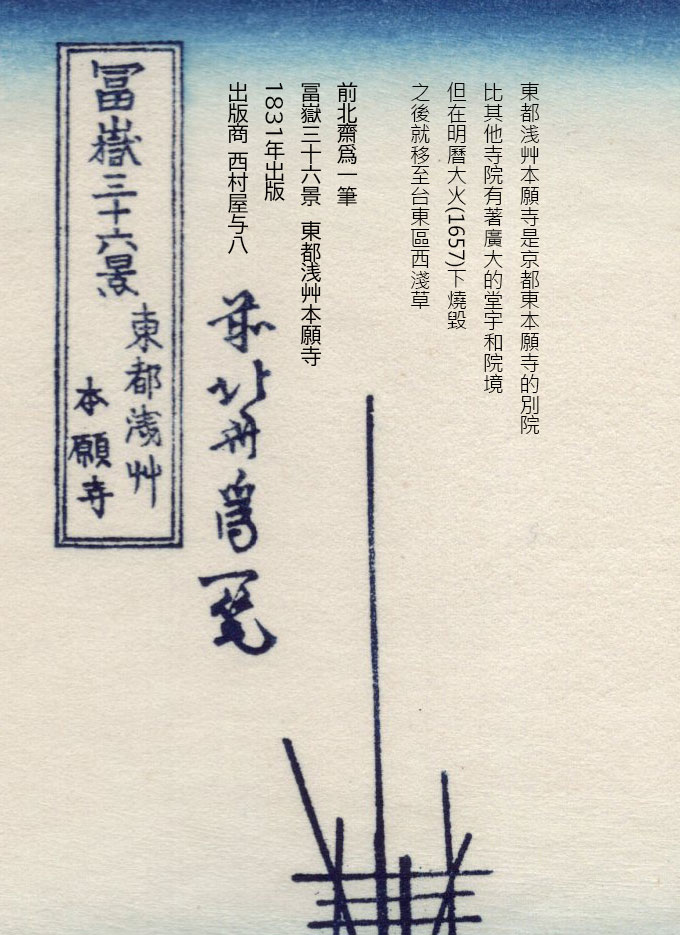 東都浅艸本願寺是京都東本願寺的別院
比其他寺院有著廣大的堂宇和院境
但在明曆大火(1657)下燒毀
之後就移至台東區西淺草
前北齋爲一筆
冨嶽三十六景 東都浅艸本願寺
1831年出版
出版商 西村屋与八
前北斎爲一筆
冨嶽三十六景
東都浅艸
本願寺